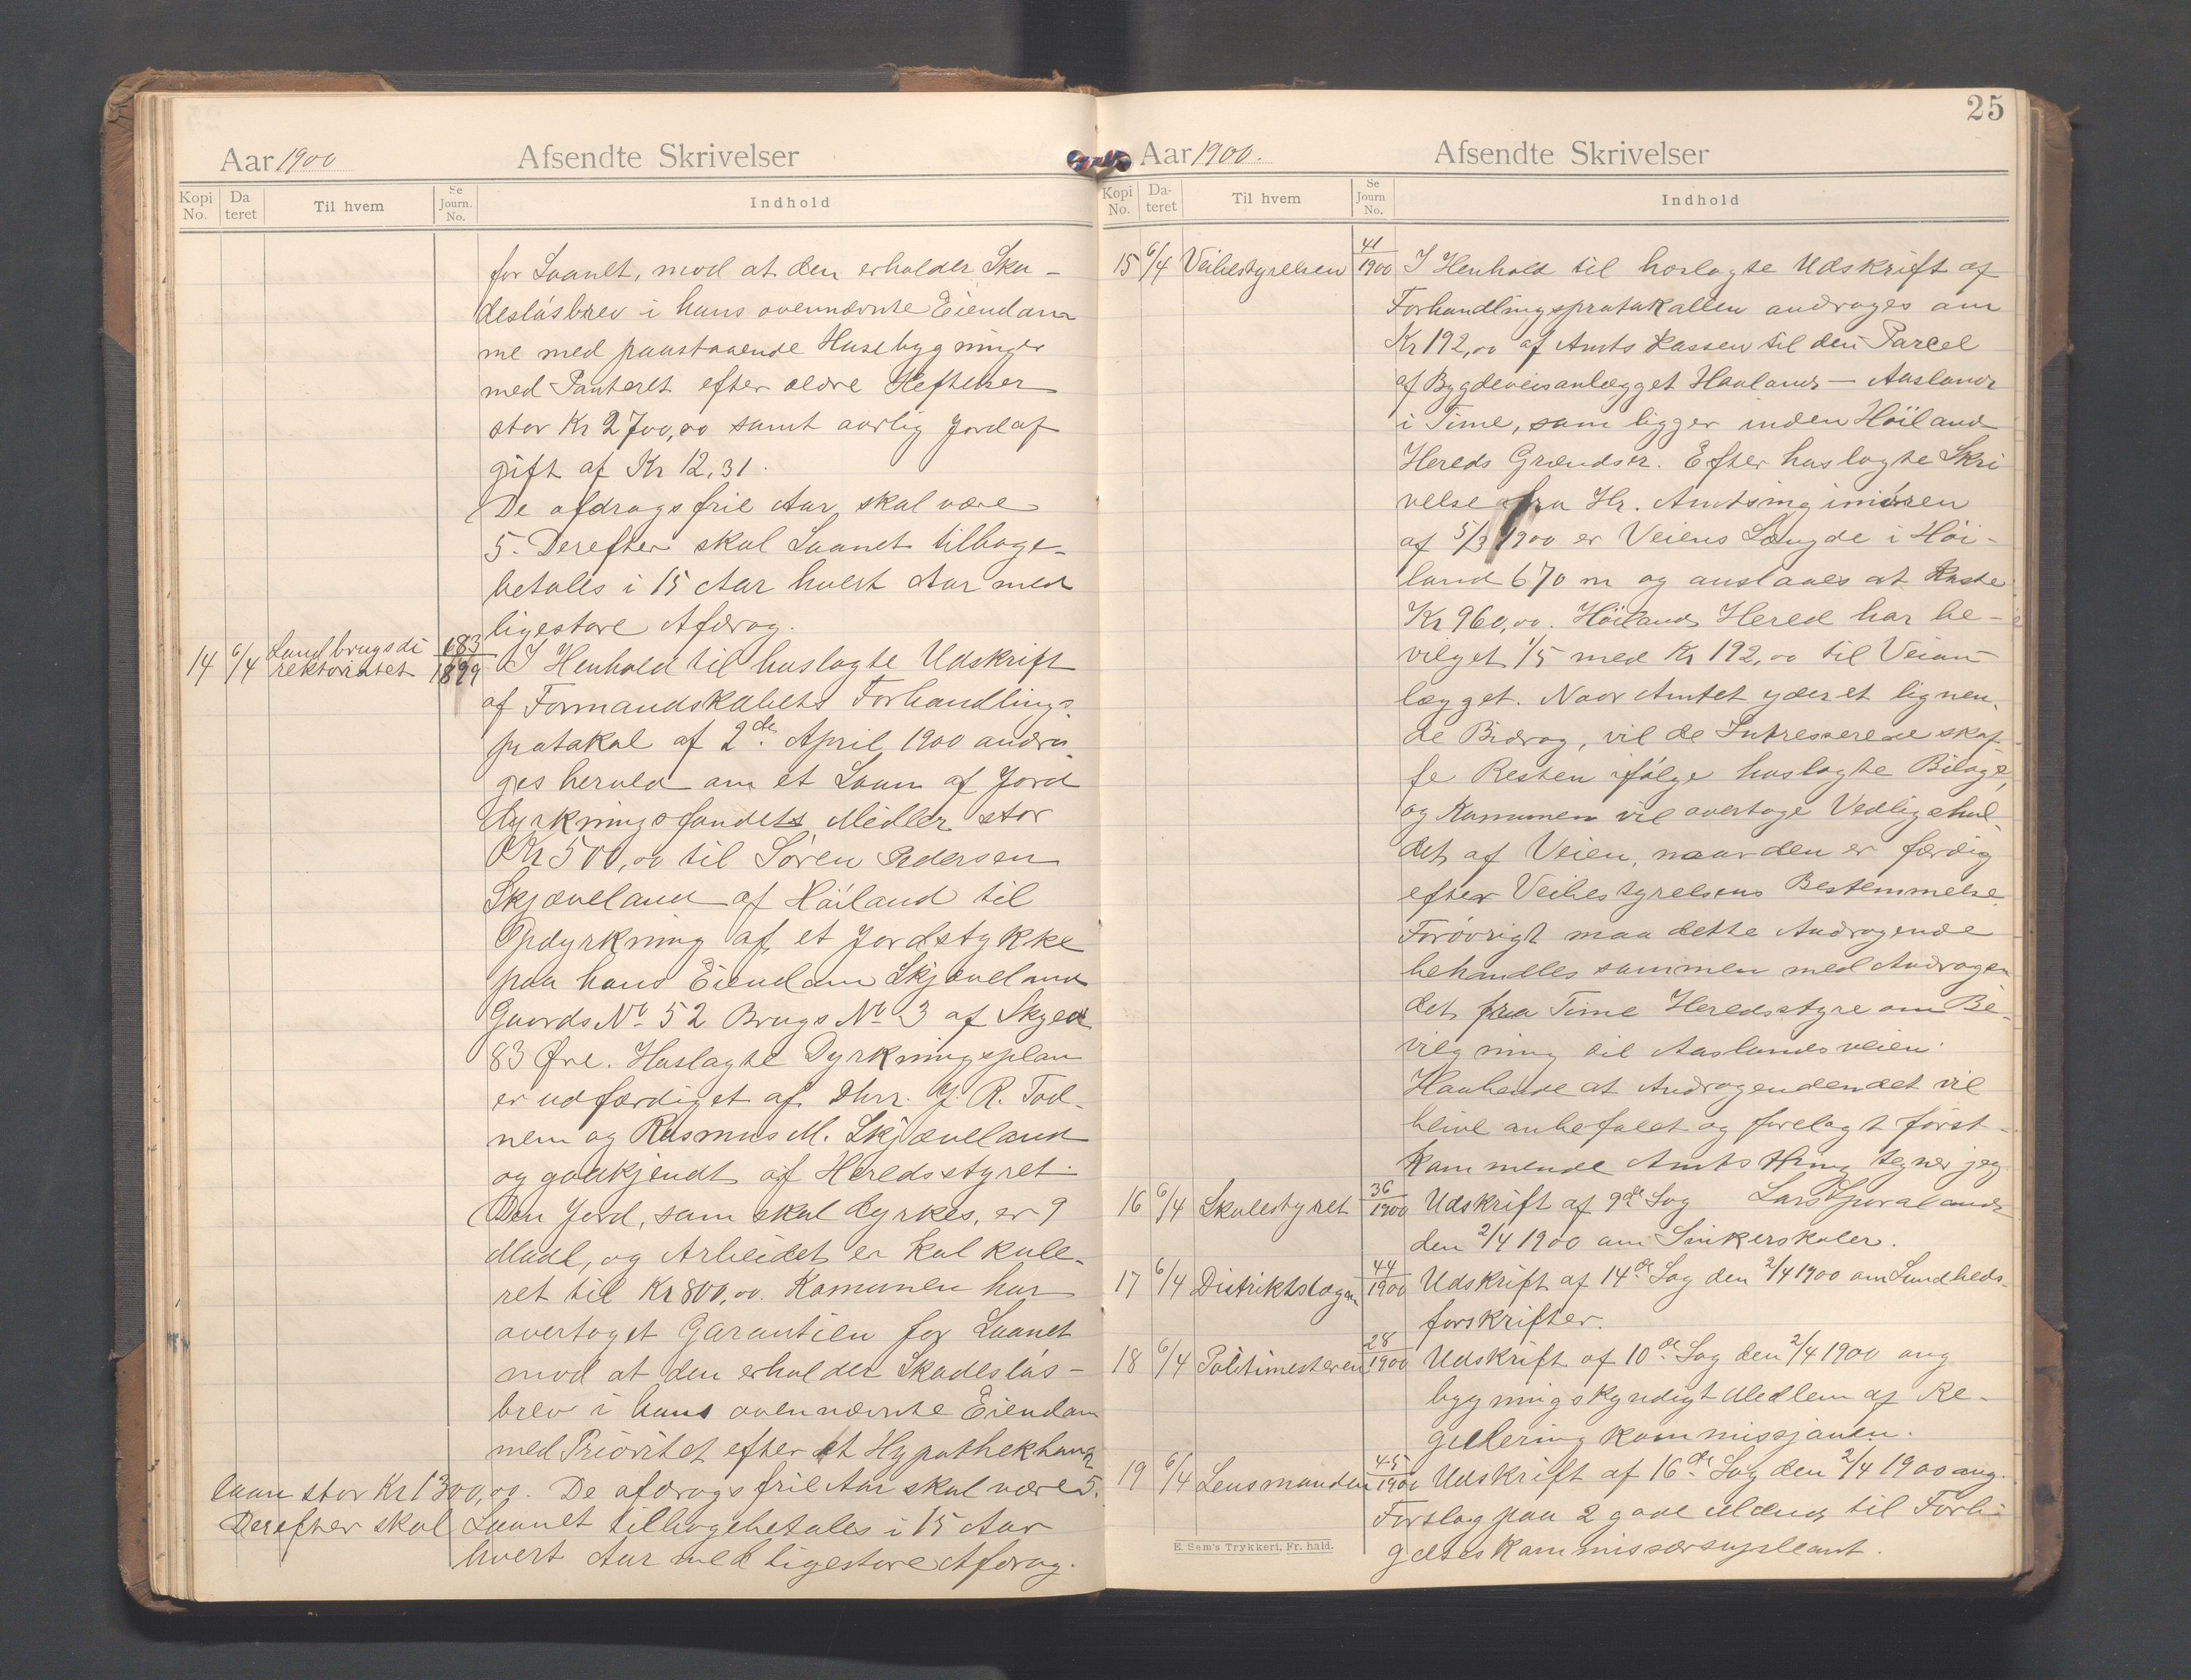 Aar 1900 Afsendte Skrivelser
Kopi No. Da teret Til hvem Se Journ. No. Indhold
for Laanet, mod at den erholder Ska-
deslösbrev i hans ovennævnte Eiendom
me med paastaaende Husebygninger
med Panteret efter ældre Heftelser
stor Kr 2700,00 samt aarlig Jordaf
gift af Kr 12,31.
De afdragsfrie Aar skal være
5. Derefter skal Laanet tilbage-
betales i 15 Aar hvert Aar med
ligestore Afdrag.
14 6/4 Landbrugsdi rektoratet 183/1899 I Henhold til hoslagte Udskrift
af Formandskabets Forhandlings
protokol af 2de April 1900 andra
ges herved om et Laan af Jord
dyrkningsfondets Midler stor
Kr 500,00 til Sören Pedersen
Skjæveland af Höiland til
Opdyrkning af et Jordstykke
paa hans Eiendom Skjæveland
Gaards No 52 Brugs No 3 af Skyld
83 Øre. Hoslagte Dyrkningsplan
er udfærdiget af Dhrr. J. R. Tod-
nem og Rasmus M. Skjæveland
og godkjendt af Heredsstyret.
Den Jord, som skal dyrkes, er 9
Maal, og Arbeidet er kalkule-
ret til Kr 800,00. Komunen har
overtaget Garantien for Laanet
mod at den erholder Skadeslös-
brev i hans ovennævnte Eiendom
med Prioritet efter et Hypothekbank
laan stor Kr 1300,00. De afdragsfrie Aar skal være 5.
Derefter skal Laanet tilbagebetales i 15 Aar
hvert Aar med ligestore Afdrag.
25
Aar 1900. Afsendte Skrivelser
Kopi No. Da- teret Til hvem Se Journ No. Indhold
15 6/4 Veibestyrelsen 41/1900 I Henhold til hoslagte Udskrift af
Forhandlingsprotokollen andrages om
Kr 192,00 af Amts Kassen til den Parcel
af Bygdeveisanlægget Haaland - Aasland
i Time, som ligger inden Höiland
Hereds Grændser. Efter hoslagte Skri
velse fra Hr. Amtsingeniören
af 5/3 1900 er Veiens Længde i Höi-
land 670 m og anslaaes at koste
Kr 960,00. Höilands Hered har be-
vilget 1/5 med Kr 192,00 til Veian-
lægget. Naar Amtet yder et lignen-
de Bidrag, vil de Intresserede skaf-
fe Resten ifölge hoslagte Bilage,
og Komunen vil overtage Vedligehol-
det af Veien, naar den er færdig
efter Veibestyrelsens Bestemmelse.
Forövrigt maa dette Andragende
behandles sammen med Andragen
det fra Time Heredsstyre om Be-
vilgning til Aaslandsveien.
Haabende at Andragendendet vil
blive anbefalet og forelagt först-
kommende Amts thing tegner jeg
Lars Sporaland
16 6/4 Skolestyret 36/1900 Udskrift af 9de Sag
den 2/4 1900 om Sinkerskoler.
17 6/4 Distriktslægen 44/1900 Udskrift af 14de Sag den 2/4 1900 om Sundheds-
forskrifter.
18 6/4 Politimesteren 28/1900 Udskrift af 10de Sag den 2/4 1900 ang
bygningskyndigt Medlem af Re-
gulering kommissjonen.
19 6/4 Lensmanden 45/1900 Udskrift af 16de Sag den 2/4 1900 ang.
Forslag paa 2 gode Mænd til Forli-
gelseskommissærsupleant.
E. Sem's Trykkeri, Fr. hald.